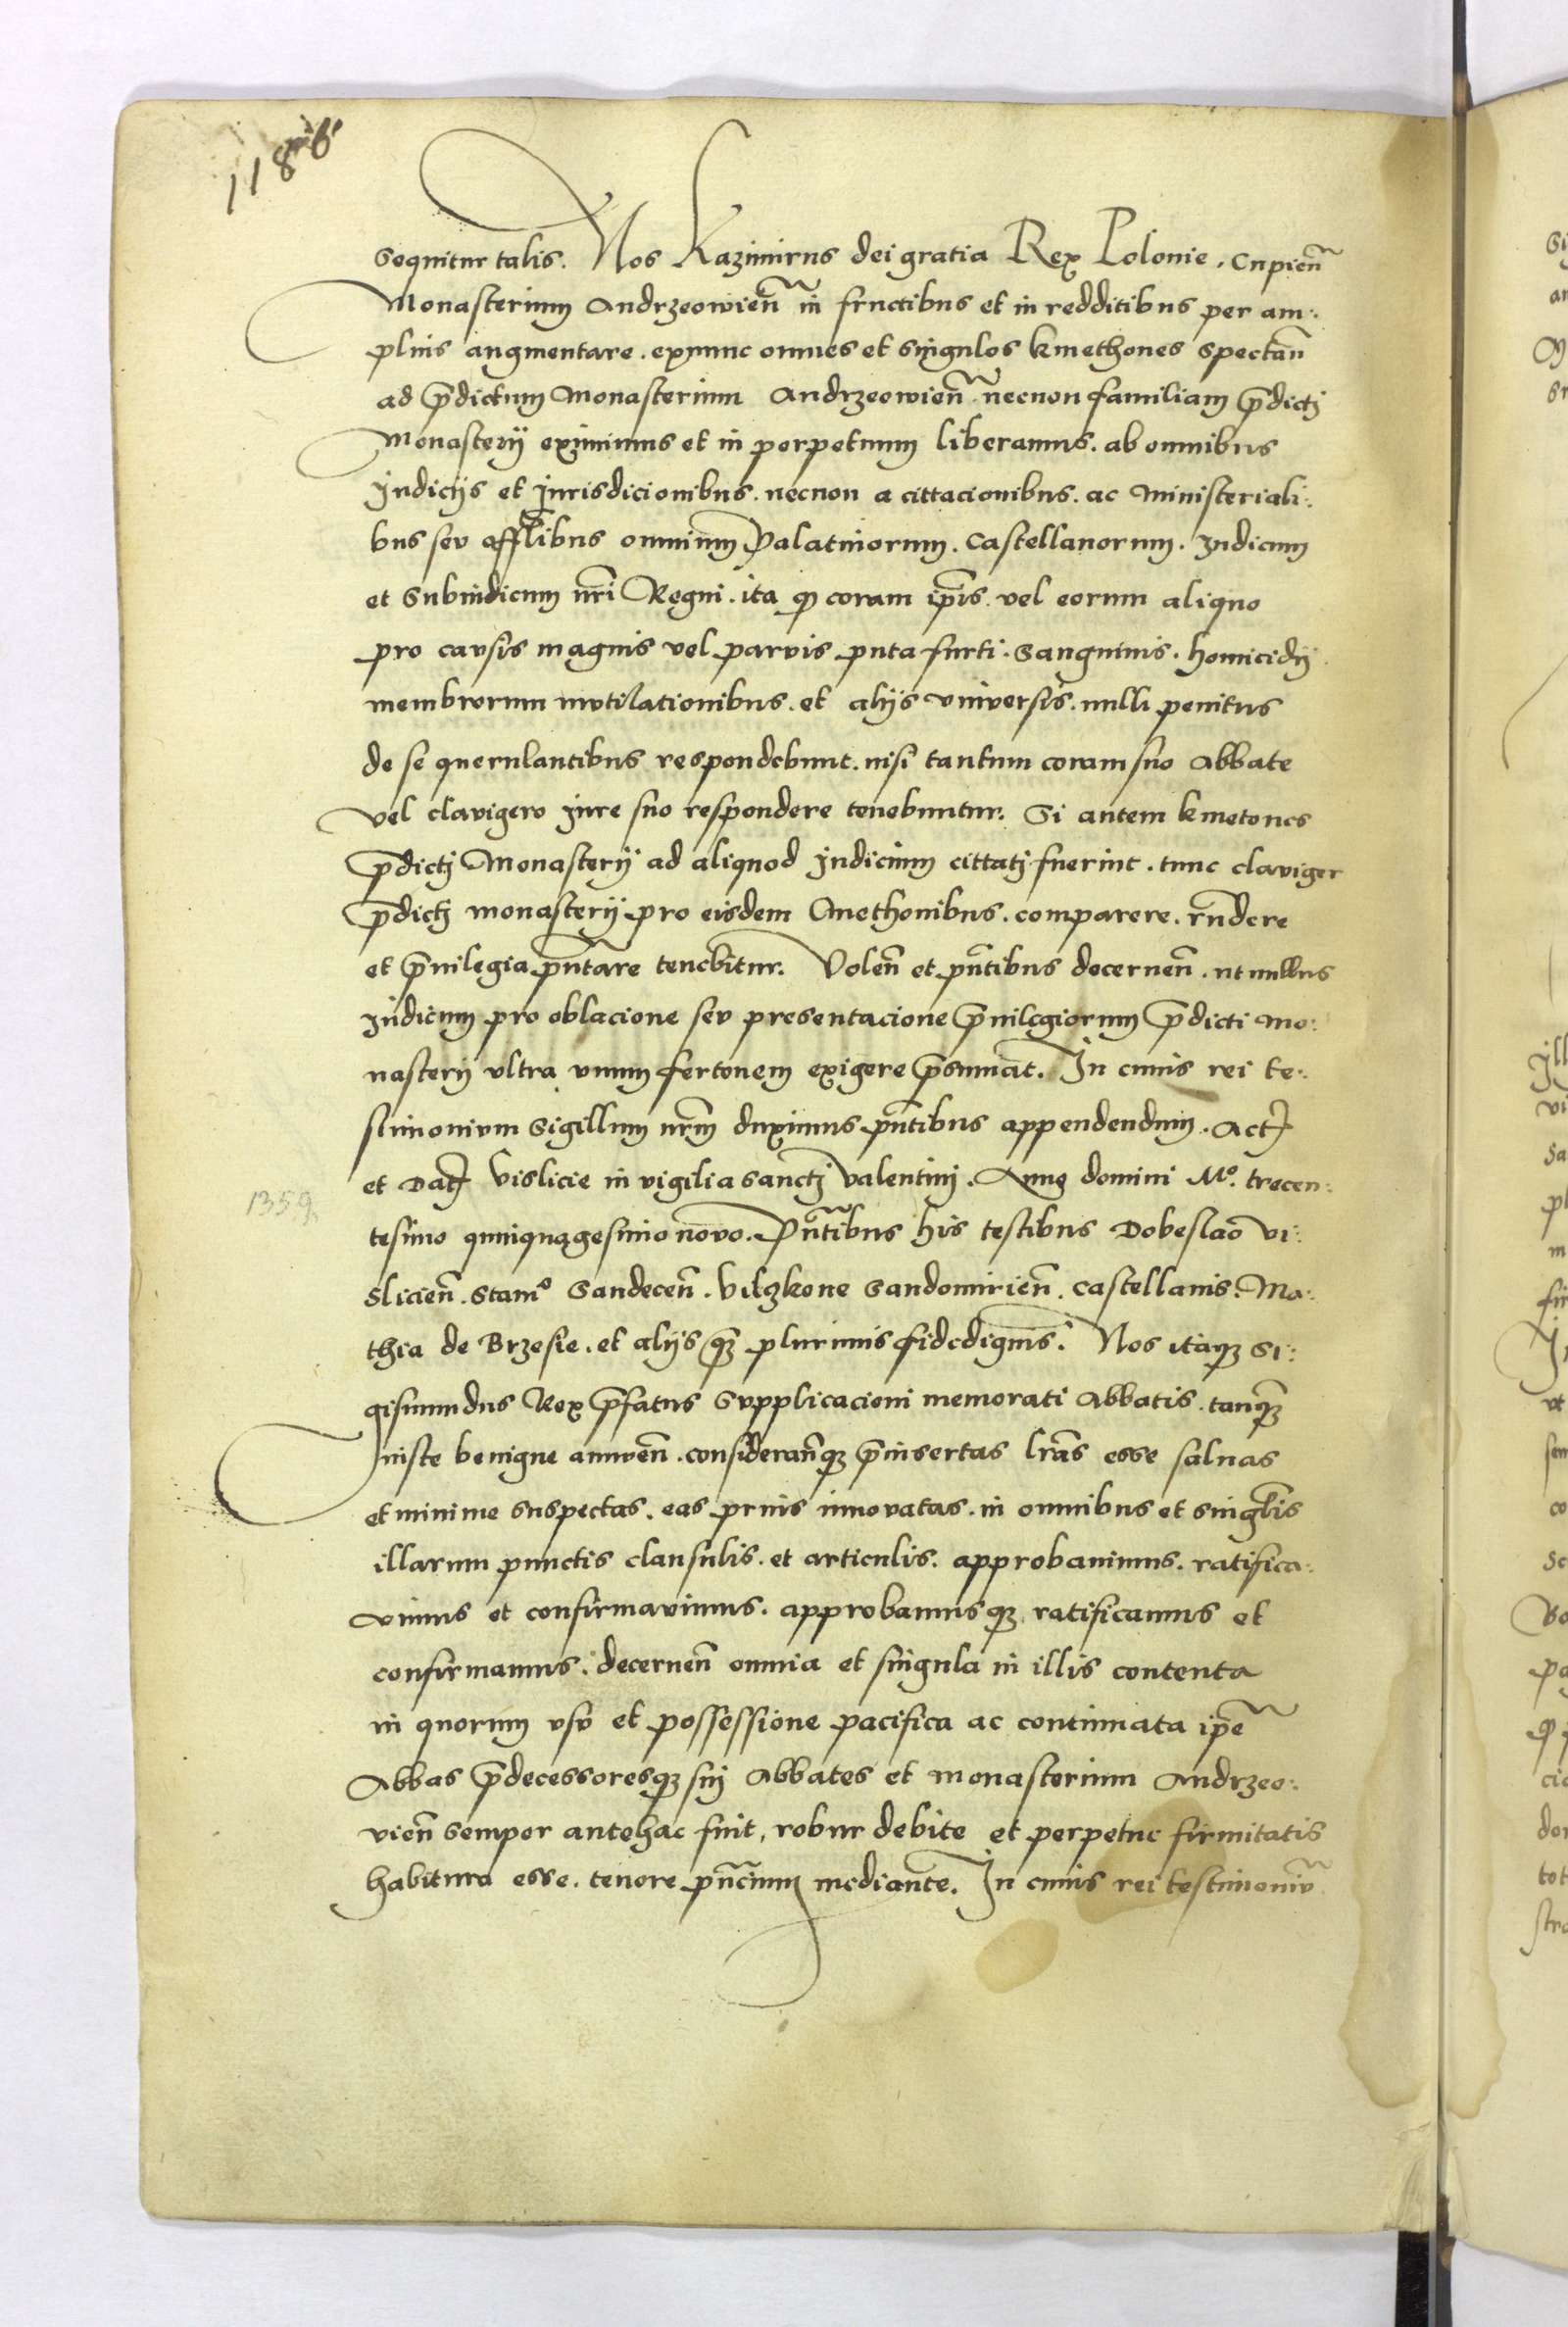 1186
sequitur talis. Nos Kazimirus dei gratia Rex Polonie. Cupien̄
Monasterium Andrzeowien̄ in fructibus et in redditibus per am:
plius augmentare. exnunc omnes et singulos kmethones spectan̄
ad p̄dictum Monasterium Andrzeowien̄ necnon familiam p̄dictj
Monasterij eximimus et in perpetuum liberamus. ab omnibus
Judicijs et Jurisdicionibus. necnon a cittacionibus. ac Ministeriali:
bus seu offl̄ibus omnium Palatinorum. Castellanorum. Judicum
et Subiudicum nr̄i Regni. ita ꝙ coram ip̄is vel eorum aliquo
pro causis magnis vel parvis puta furti. Sanguinis. homicidij
membrorum mutilationibus. et alijs vniversis. nulli penitus
de se querulantibus respondebunt. nisi tantum coram suo Abbate
vel clavigero Jure suo respondere tenebuntur. Si autem kmetones
p̄dictj Monasterij ad aliquod Judicium cittatj fuerint. tunc claviger
p̄dictj monasterij pro eisdem Cmethonibus. comparere. rn̄dere
et p̄uilegia pn̄tare tenebitur. Volen̄ et pn̄tibus decernen̄. ut nullus
Judicum pro oblacione seu presentacione p̄uilegiorum p̄dicti Mo:
nasterij vltra vnum fertonem exigere p̄sumat. In cuius rei te:
stimonium Sigillum nr̄m duximus pn̄tibus appendendum. Act
et Dat Vislicie in vigilia sanctj Valentinj. Anno domini Mº. trecen:
1359.
tesimo quinquagesimo novo. Pn̄tibus his testibus Dobeslao Vi:
slicien̄. Stanº Sandecen̄. Vilczkone Sandomirien̄. Castellanis. Ma:
thia de Brzesie. et alijs qꝫ plurimis fidedignis. Nos itaqꝫ Si:
gismundus Rex p̄fatus Supplicacioni memorati Abbatis. tanqꝫ
iuste benigne annuen̄. consideran̄qꝫ p̄insertas lr̄as esse salvas
et minime suspectas. eas prius innovatas. in omnibus et singl̄is
illarum punctis clausulis. et articulis. approbauimus. ratifica:
vimus et confirmavimus. approbamusqꝫ ratificamus et
confirmamus. decernen̄ omnia et singula in illis contenta
in quorum usu et possessione pacifica ac continuata ip̄e
Abbas p̄decessoresqꝫ sui Abbates et monasterium Andrzeo:
vien̄ semper antehac fuit, robur debite et perpetue firmitatis
habitura esse. tenore pn̄cium mediante. In cuius rei testimoniū